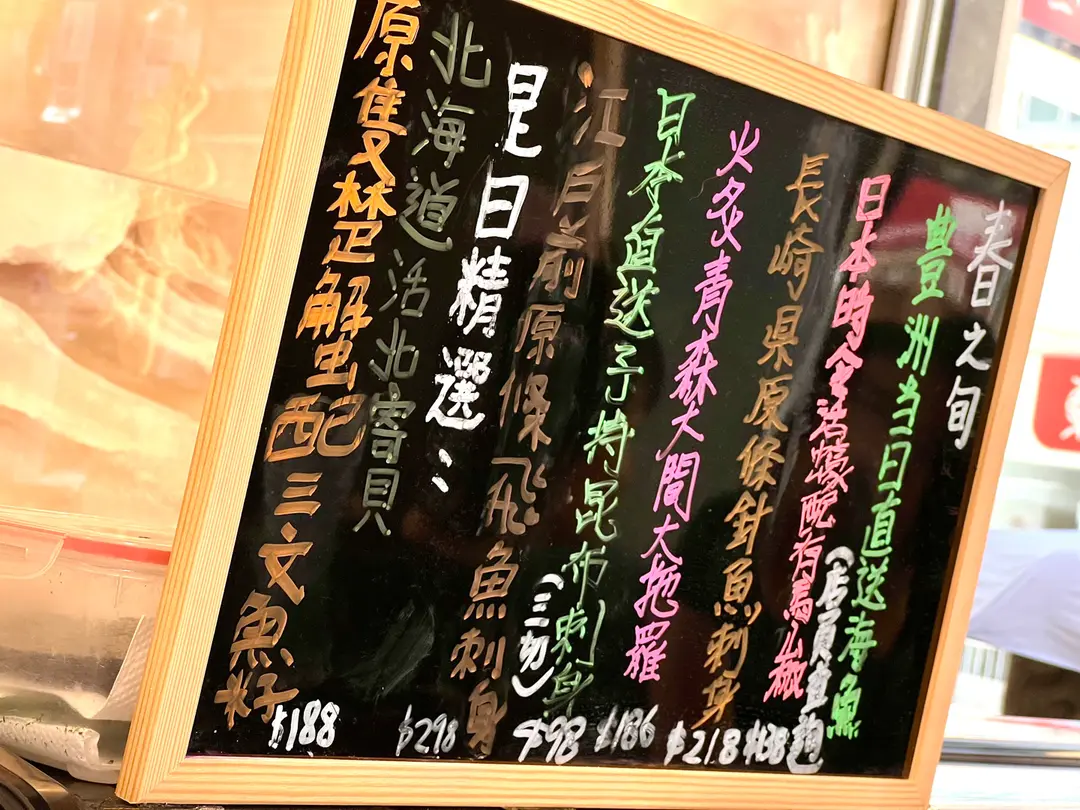 春之旬
豐洲当日直送海魚
(店員查詢)
日本時令活蠔配有馬山椒
$138
長崎県原條針魚刺身
$218
火炙青森大間大拖羅
$186
日本直送子持昆布刺身
(三切)
$98
江戸前原條飛魚刺身
$298
是日精選：
北海道活北寄貝
原隻楚蟹配三文魚籽
$188